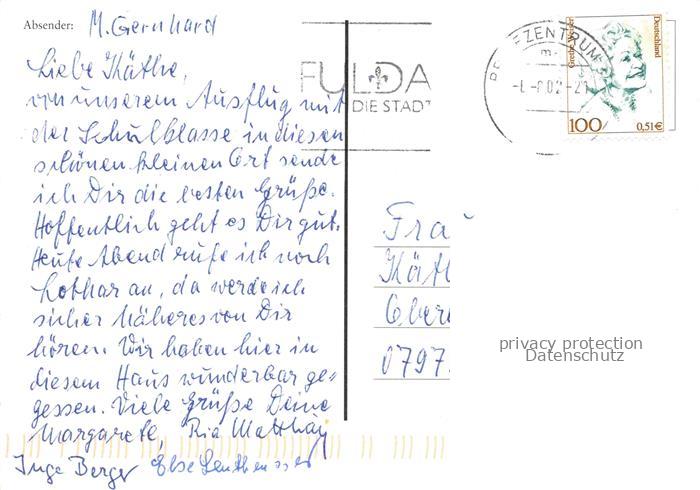 Absender: M. Gernhard
Liebe Käthe,
von unserem Ausflug mit
der Schulklasse in diesen
schönen kleinen Ort sende
ich Dir die besten Grüße.
Hoffentlich geht es Dir gut.
Heute Abend rufe ich noch
Lothar an, da werde ich
sicher Näheres von Dir
hören. Wir haben hier in
diesem Haus wunderbar ge-
gessen. Viele Grüße Deine
Margarete, Ria Matthay
Inge Berger Else
FULDA
DIE STADT
BRIEFZENTRUM
Deutschland
100
0,51€
Fra
Käth
Ober
0797
privacy protection
Datenschutz